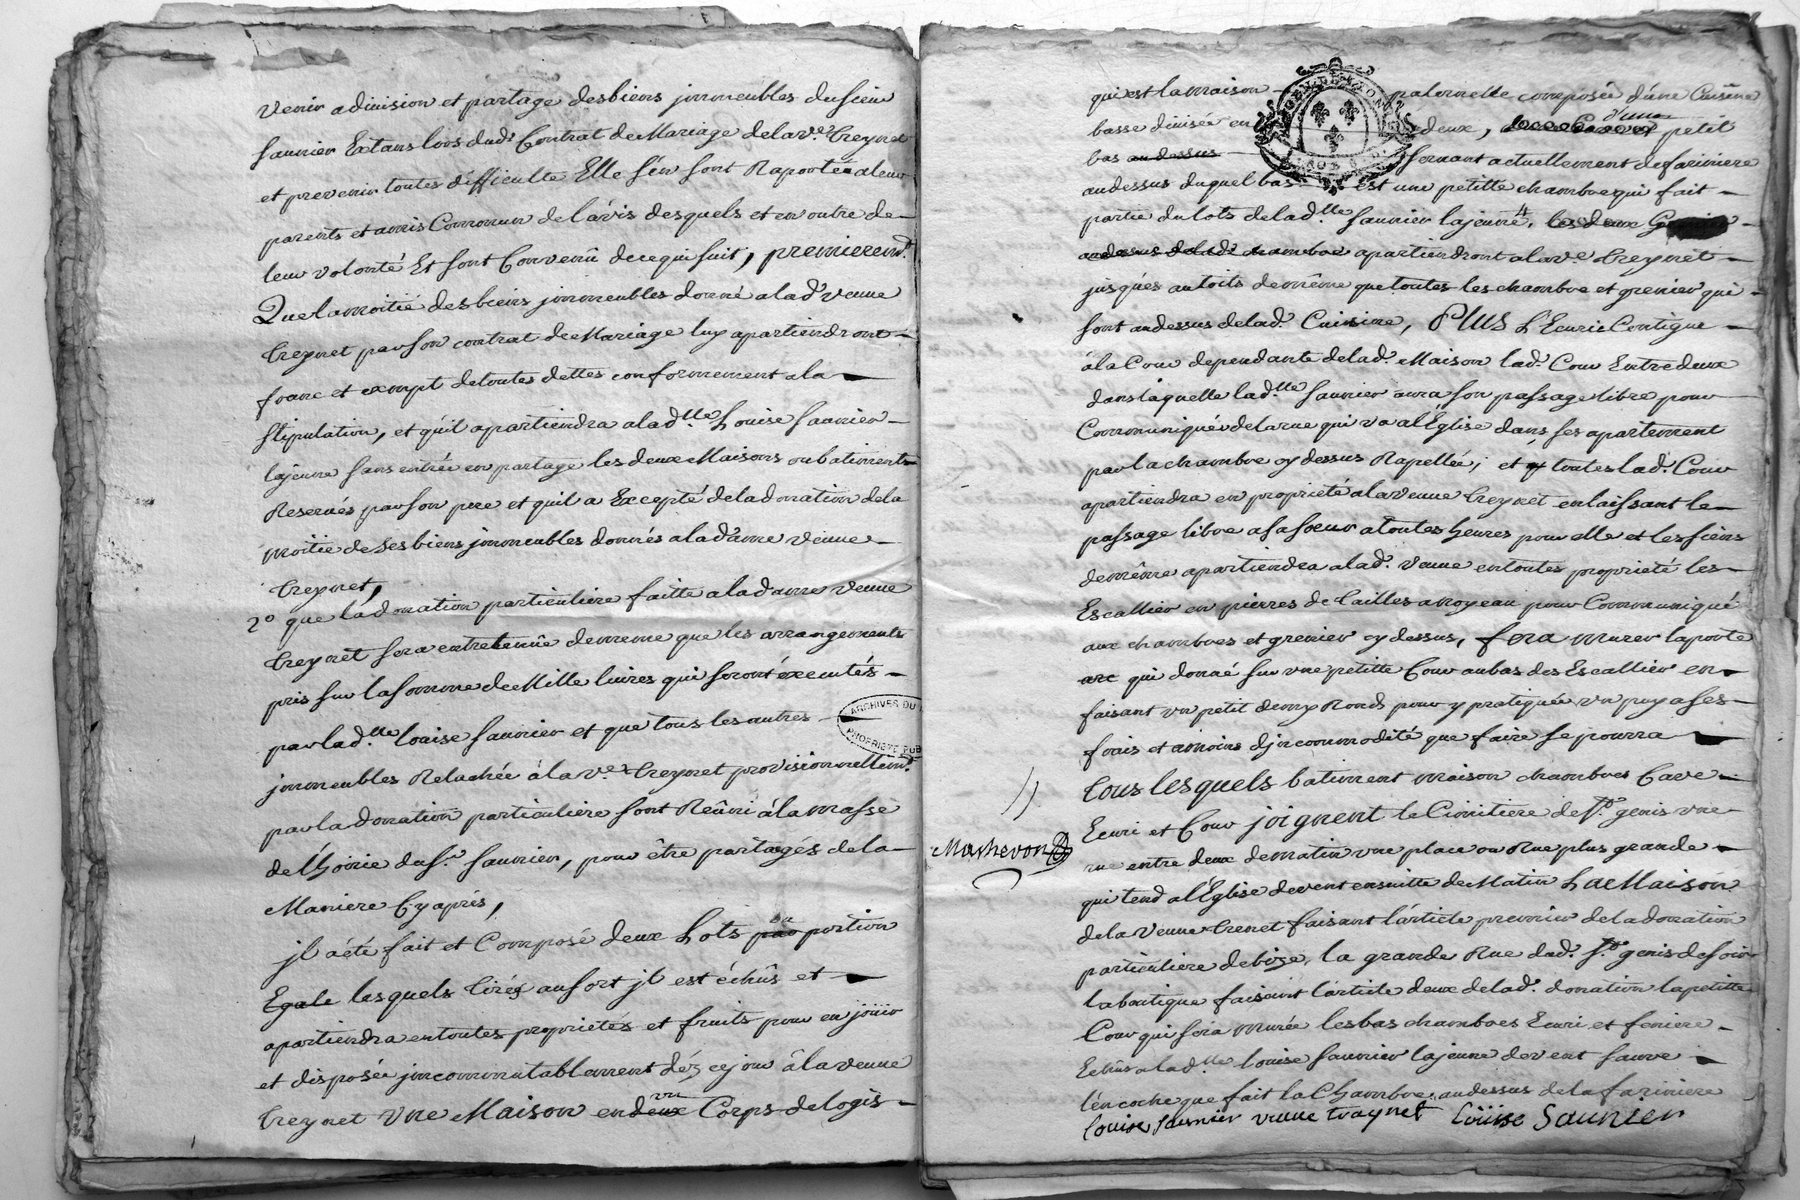 venir a division et partage des biens jmmeubles du sieur
saunier Extans lors dud. Contrat de Mariage de la ve. treynet
et prevenir toutes difficulte Elle s'en sont Raportée a leur
parents et amis Commun de l'avis desquels et en outre de
leur volonté Et sont Convenû de ce qui suit, premieremt.
Que la moitié des biens jmmeubles donné a lad. veuve
treynet par son contrat de Mariage luy apartiendront
franc et exempt de toutes dettes conformement a la
stipulation, et qu'il apartiendra a lad. lle Louise saunier
lajeune sans entrée en partage les deux Maisons ou batiments
Reservés par son pere et qu'il a Excepté de la donation de la
moitié de ses biens jmmeubles donnés a la dame veuve
treynet,
2o que la donation particuliere faitte a la dame veuve
treynet sera entretenûe de meme que les arrangements
pris sur la somme de Mille livres qui seront éxecutés
par lad. lle louise saunier et que tous les autres
ARCHIVES DU
PROPRIETE PUB
jmmeubles Relachée à la ve. treynet provisionnellemt.
par la donation particuliere sont Reûni à la masse
de l'hoirie du sr. saunier, pour être partagés de la
Maniere Cy aprés,
jl a été fait et Composé deux Lots portion
Egale lesquels tirés au sort jl est échûs et
apartiendra en toutes proprietés et fruits pour en joüir
et disposée jncommutablement déz ce jour à la veuve
treynet Vne Maison en deux un Corps de logis
qui est la maison paternelle composée d'une Cuisine
basse divisée en deux, d'une petit
bas au dessus servant actuellement de fariniere
au dessus duquel bas est une petitte chambre qui fait
partie du lots de lad. lle saunier lajeune, les deux
au dessus de lad. chambre apartiendront a la ve treynet
jusqués au toits de même que toutes les chambre et grenier qui
sont au dessus de lad. Cuisine, Plus L'Ecurie Contigue
à la Cour dependante de lad. Maison lad. Cour Entre deux
dans laquelle lad. lle saunier aura son passage libre pour
Communiquér de la rue qui va al'Eglise dans ses apartement
par la chambre cy dessus Rapellée; et toutes lad. Cour
apartiendra en proprieté a la veuve treynet en laissant le
passage libre a sa soeur a toutes heures pour elle et les siens
de même apartiendra a lad. veuve en toutes proprieté les
Escallier en pierres de tailles a noyeau pour Communiqué
aux chambres et grenier cy dessus, fera murer la porte
qui donné sur une petitte Cour au bas des Escallier en
faisant un petit demy Rond pour y pratiquée un puy a ses
frais et a moins d'jncommodité que faire se pourra
tous lesquels batiment maison chambres Cave
Ecuri et Cour joignent le Cimitiere de st. genis vne
rue entre deux de matin vne place ou Rue plus grande
Marchevon
qui tend al'Eglise devent ensuitte de Matin La Maison
de la veuve trenet faisant l'article premier de la donation
particuliere de bize, la grande Rue dud. st. genis de soir
la boutique faisant l'article deux de lad. donation la petitte
Cour qui sera murée les bas chambres Ecuri et feniere
Echûs a lad. lle louise saunier lajeune de vent sauve
l'encoche que fait la Chambre au dessus de la fariniere
louise saunier veuve traynet Loüise Saunier